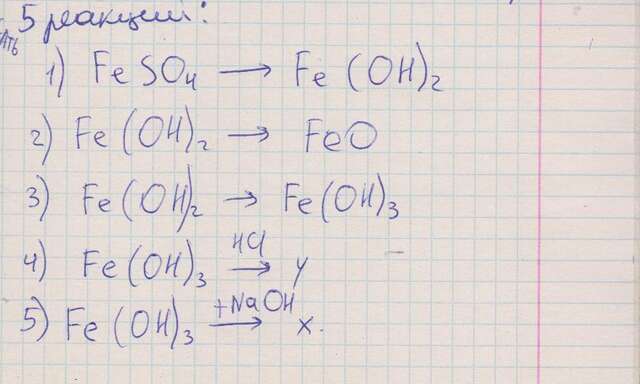 5 реакции:
ать
1) FeSO4 → Fe(OH)2
2) Fe(OH)2 → FeO
3) Fe(OH)2 → Fe(OH)3
4) Fe(OH)3 HCl→ y
5) Fe(OH)3 +NaOH→ x.